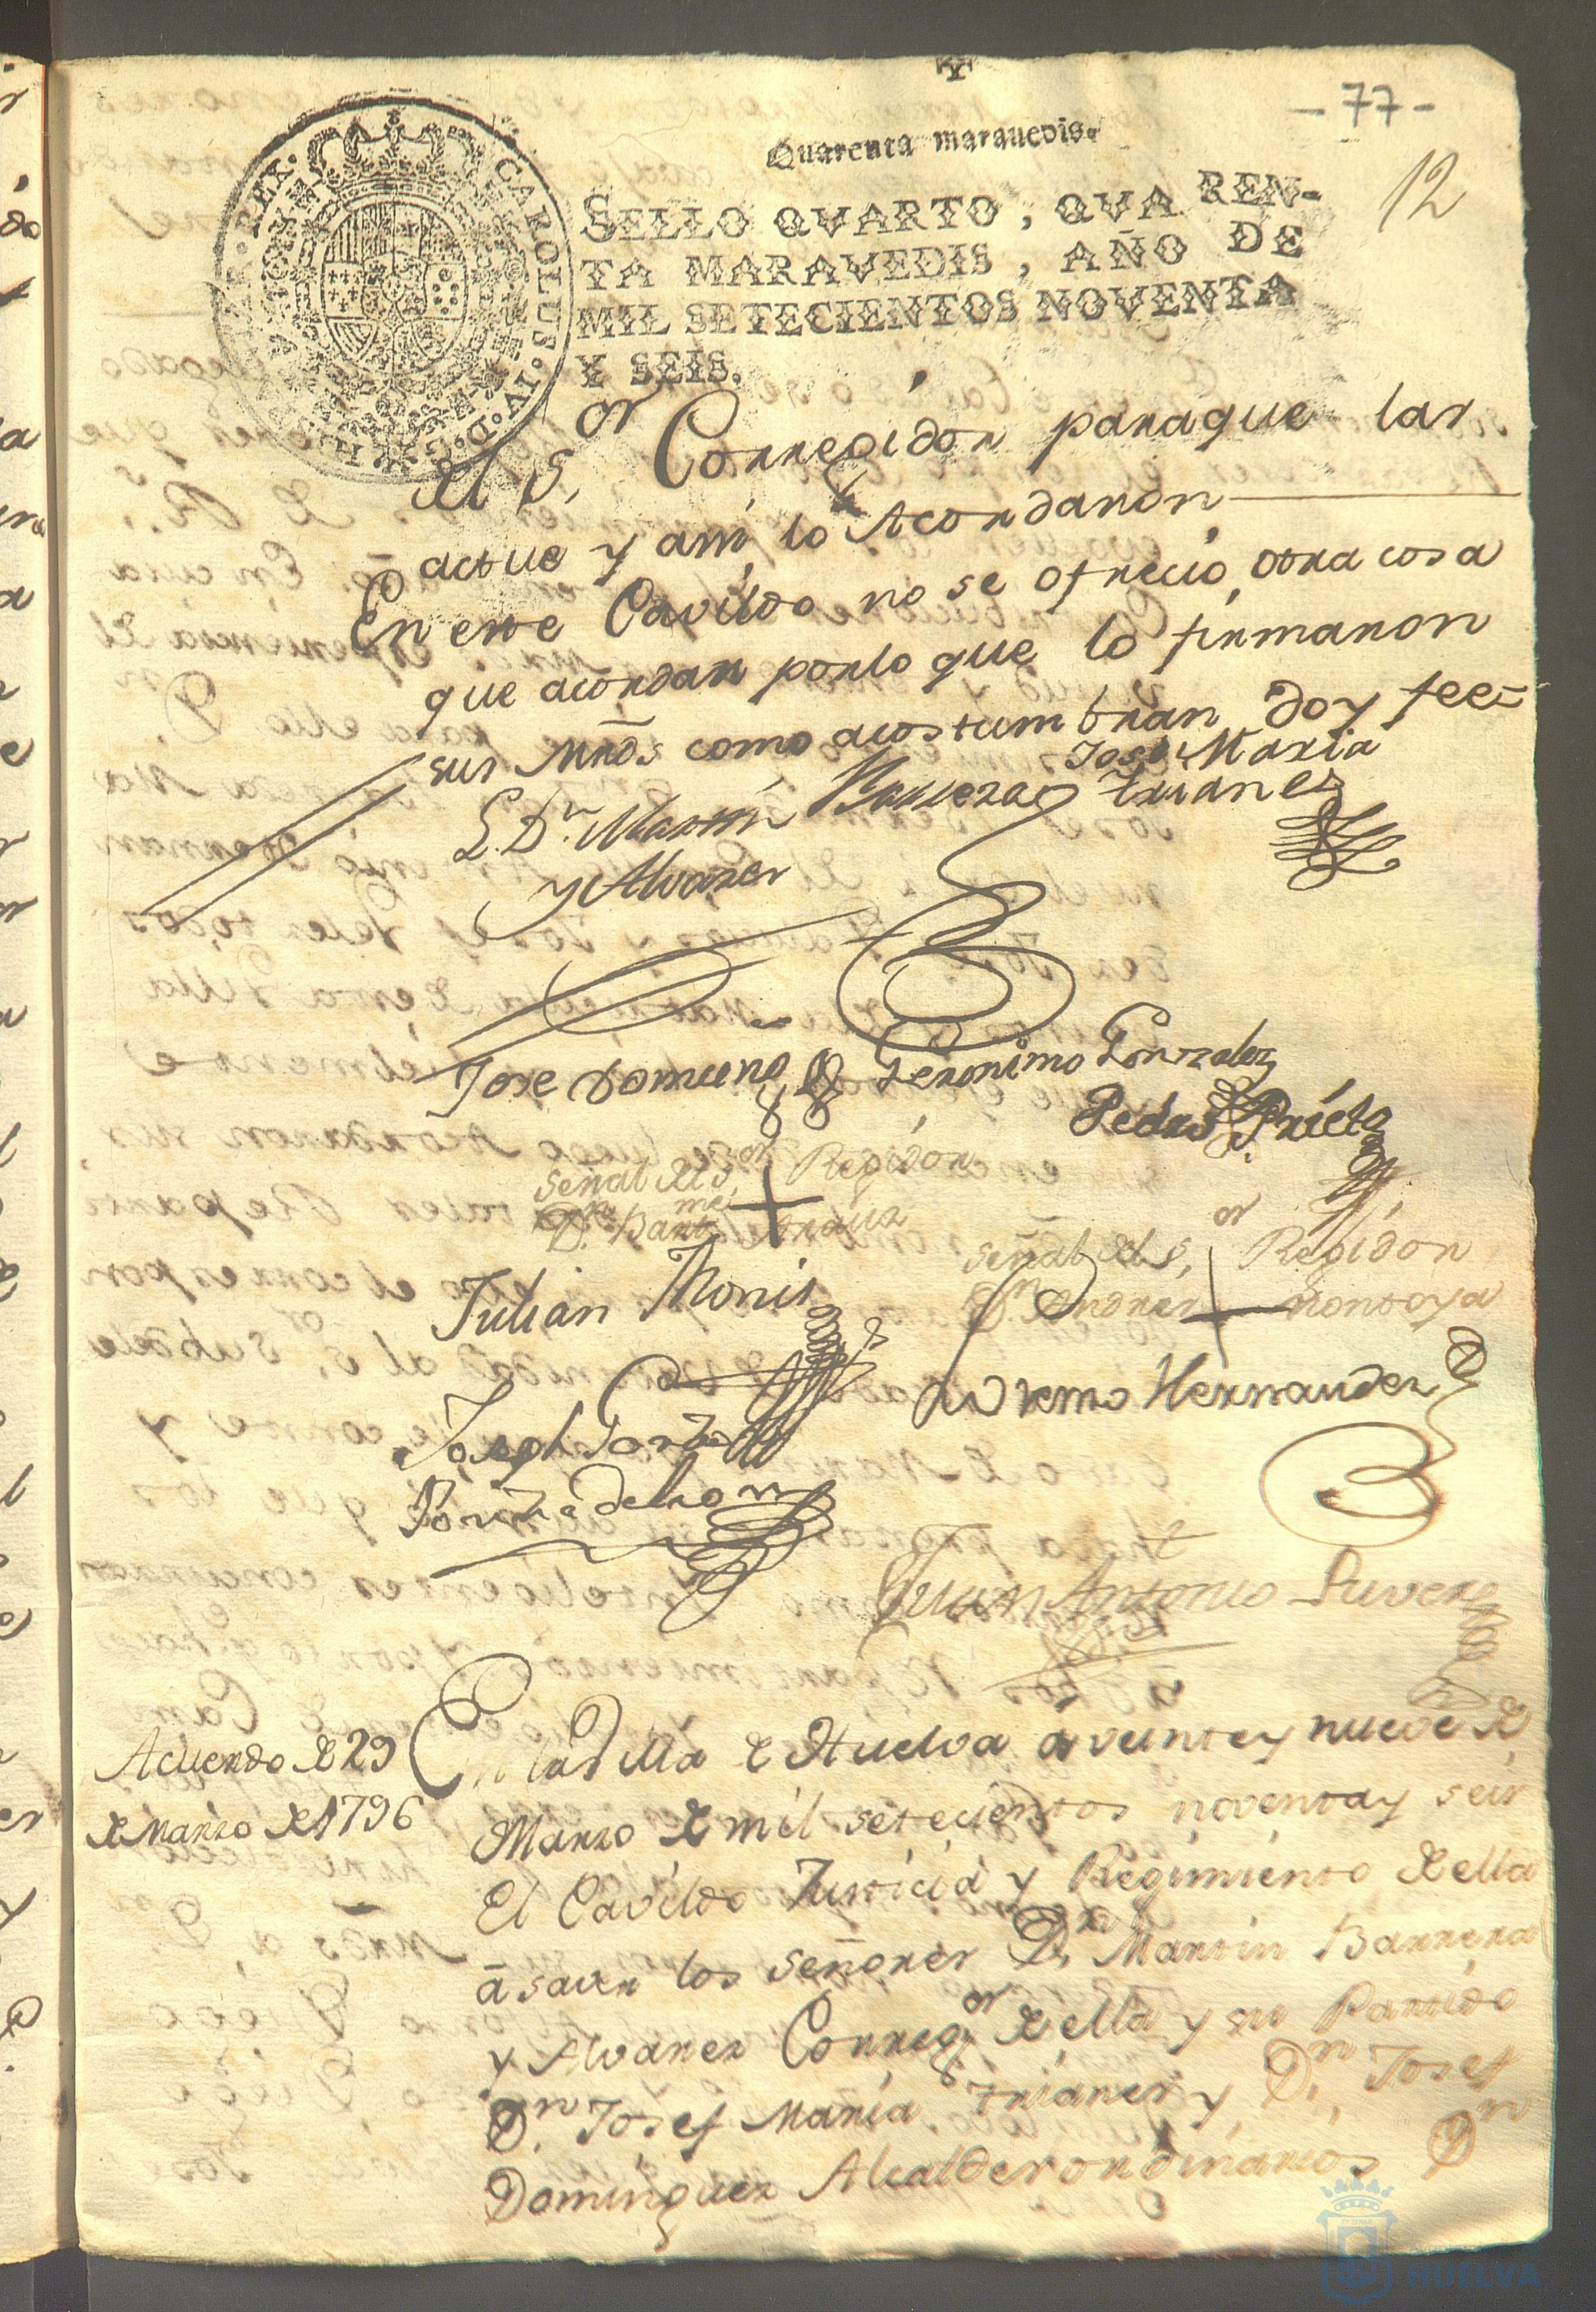 - 77 -
12
Quarenta marauedis.
SELLO QVARTO, QVAREN-
TA MARAVEDIS, AÑO DE
MIL SETECIENTOS NOVENTA
Y SEIS.
CAROLUS. IV. D. G. HISPANIAR. REX.
el S.or Corregidor paraque las
actue y asi lo Acordaron
En este Cavildo no se ofrecio otra cosa
que acordar porlo que lo firmaron
sus Mrds como acostumbran doy fee=
L. Dn. Martin Barrera
y Alvarez
Josè Maria
Trianes
Jose Domueno
Geronimo Gonzalez
Pedro Prieto
Señal del S.or Regidor
Dn. Barte. Arauz
Señal del S.or Regidor
Dn. Andres Montoya
Julian Monis
Lorenzo Hernandez
Joseph
Juan Antonio
Acuerdo de 29
de Marzo de 1796
En la Villa de Huelva a veinte y nueve de
Marzo de mil setecientos noventa y seis
El Cavildo Justicia y Regimiento de ella
â saver los Señores Dn. Martin Barrera
y Alvarez Correg.or de ella y su Partido
Dn. Josef Maria Trianes y Dn. Josef
Dominguez Alcaldes ordinarios Dn
HUELVA